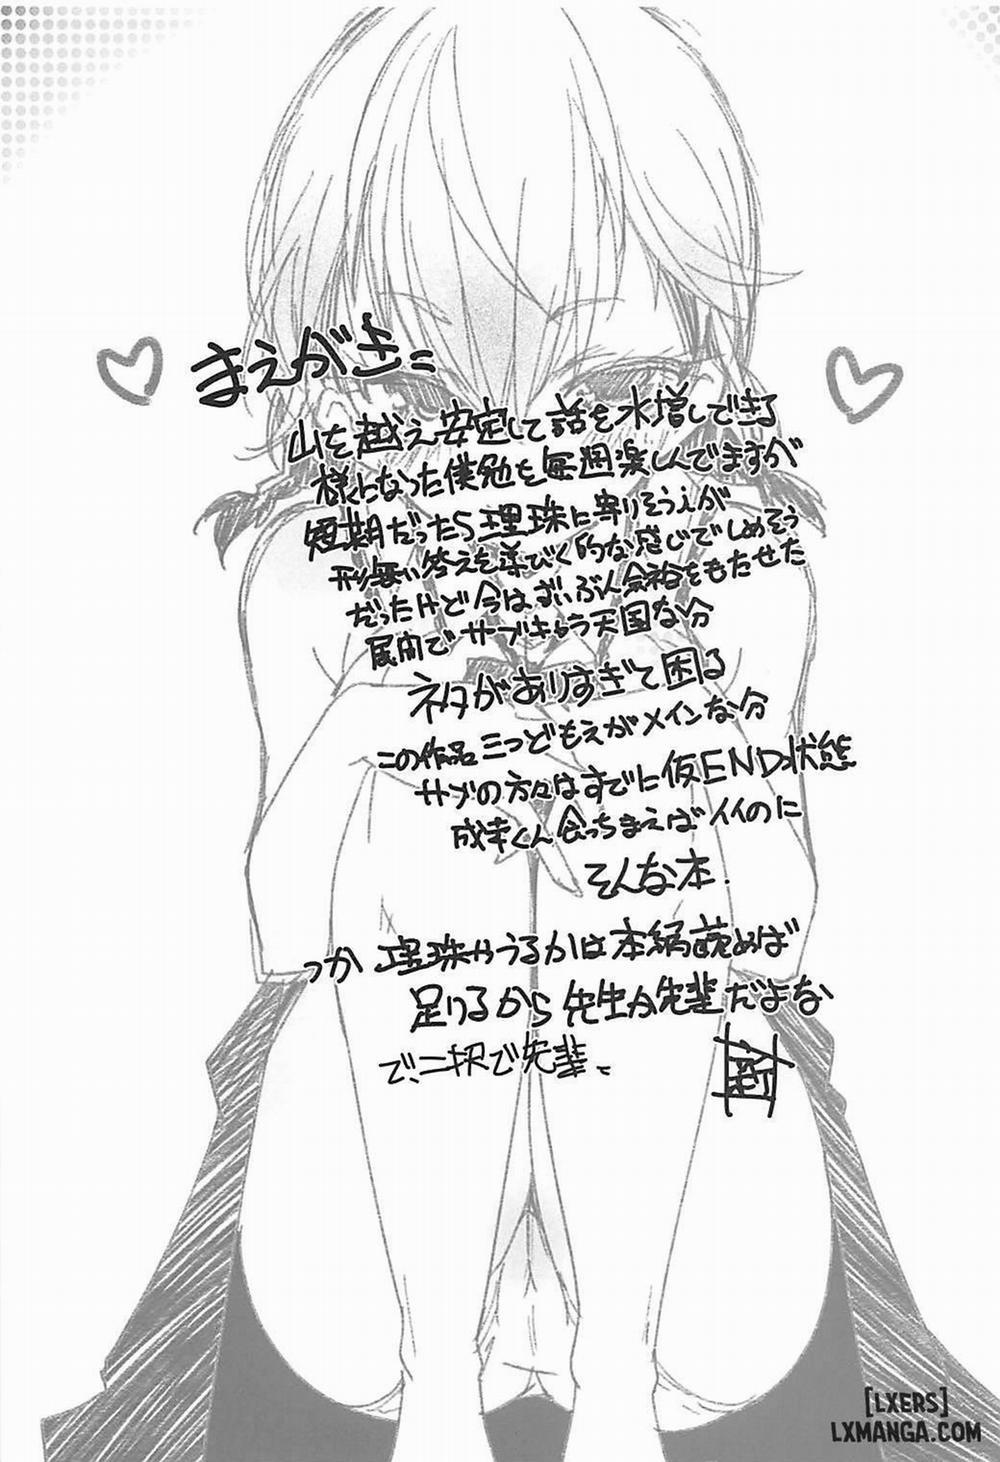 まえがき
山を越え安定して話を水増しできる
様になった僕勉を毎週楽しんでますが
短期だったら理珠に寄りそうiが
形無い答えを導びく的な感じでしめそう
だったけど今はずいぶん余裕をもたせた
展開でサブキャラ天国な分
ネタがありすぎて困る
この作品三つどもえがメインな分
サブの方々はすでに仮END状態
成幸くん会っちまえばイイのに
そんな本.
つか 理珠やうるかは本編読めば
足りるから先生か先輩だよな
で、二択で先輩。
[LXERS]
LXMANGA.COM